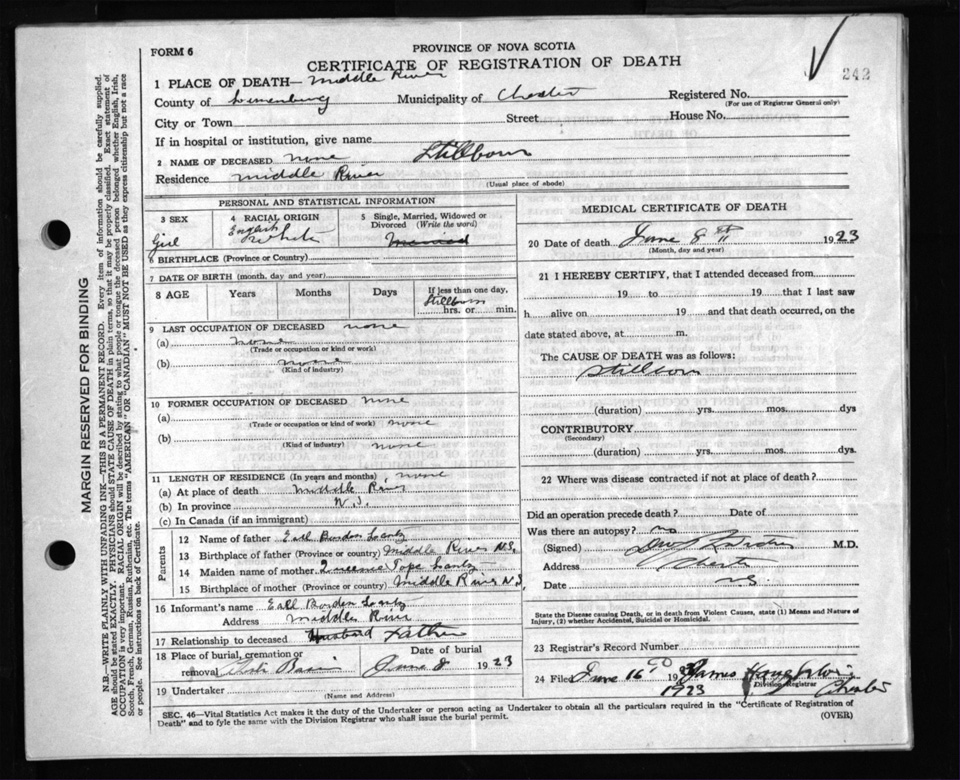 FORM 6
PROVINCE OF NOVA SCOTIA
CERTIFICATE OF REGISTRATION OF DEATH
242
1 PLACE OF DEATH— Middle River
County of Lunenburg Municipality of Chester Registered No.
(For use of Registrar General only)
City or Town Street House No.
If in hospital or institution, give name
2 NAME OF DECEASED none Stillborn
Residence Middle River
(Usual place of abode)
PERSONAL AND STATISTICAL INFORMATION
3 SEX
Girl
4 RACIAL ORIGIN
English
White
5 Single, Married, Widowed or
Divorced (Write the word)
Married
6 BIRTHPLACE (Province or Country)
7 DATE OF BIRTH (month, day and year)
8 AGE Years Months Days If less than one day,
Stillborn
hrs. or min.
9 LAST OCCUPATION OF DECEASED none
(a) none
(Trade or occupation or kind or work)
(b) none
(Kind of industry)
10 FORMER OCCUPATION OF DECEASED none
(a)
(Trade or occupation or kind of work) none
(b)
(Kind of industry) none
11 LENGTH OF RESIDENCE (In years and months) none
(a) At place of death Middle River
(b) In province N.S.
(c) In Canada (if an immigrant)
Parents
12 Name of father Earl Borden Lantz
13 Birthplace of father (Province or country) Middle River N.S.
14 Maiden name of mother Pope Lantz
15 Birthplace of mother (Province or country) Middle River N.S.
16 Informant's name Earl Borden Lantz
Address Middle River
17 Relationship to deceased Husband Father
18 Place of burial, cremation or
removal Basin
Date of burial
June 8 1923
19 Undertaker
(Name and Address)
MEDICAL CERTIFICATE OF DEATH
20 Date of death June 8th 1923
(Month, day and year)
21 I HEREBY CERTIFY, that I attended deceased from
19 to 19 that I last saw
h alive on 19 and that death occurred, on the
date stated above, at m.
The CAUSE OF DEATH was as follows:
Stillborn
(duration) yrs. mos. dys
CONTRIBUTORY
(Secondary)
(duration) yrs. mos. dys.
22 Where was disease contracted if not at place of death?
Did an operation precede death? Date of
Was there an autopsy? no
(Signed) M.D.
Address Chester
Date N.S.
State the Disease causing Death, or in death from Violent Causes, state (1) Means and Nature of
Injury, (2) whether Accidental, Suicidal or Homicidal.
23 Registrar's Record Number
24 Filed June 16 19 James
1923 Division Registrar Chester
SEC. 46—Vital Statistics Act makes it the duty of the Undertaker or person acting as Undertaker to obtain all the particulars required in the "Certificate of Registration of
Death" and to fyle the same with the Division Registrar who shall issue the burial permit.
(OVER)
MARGIN RESERVED FOR BINDING
N.B.—WRITE PLAINLY WITH UNFADING INK—THIS IS A PERMANENT RECORD. Every item of information should be carefully supplied.
AGE should be stated EXACTLY. PHYSICIANS should STATE CAUSE OF DEATH in plain terms, so that it may be properly classified. Exact statement of
OCCUPATION is very important. RACIAL ORIGIN will be described by stating to what people or tongue the deceased person belonged whether English, Irish,
Scotch, French, German, Russian, Ruthenian, etc. The terms "AMERICAN" OR "CANADIAN" MUST NOT BE USED as they express citizenship but not a race
or people. See instructions on back of Certificate.